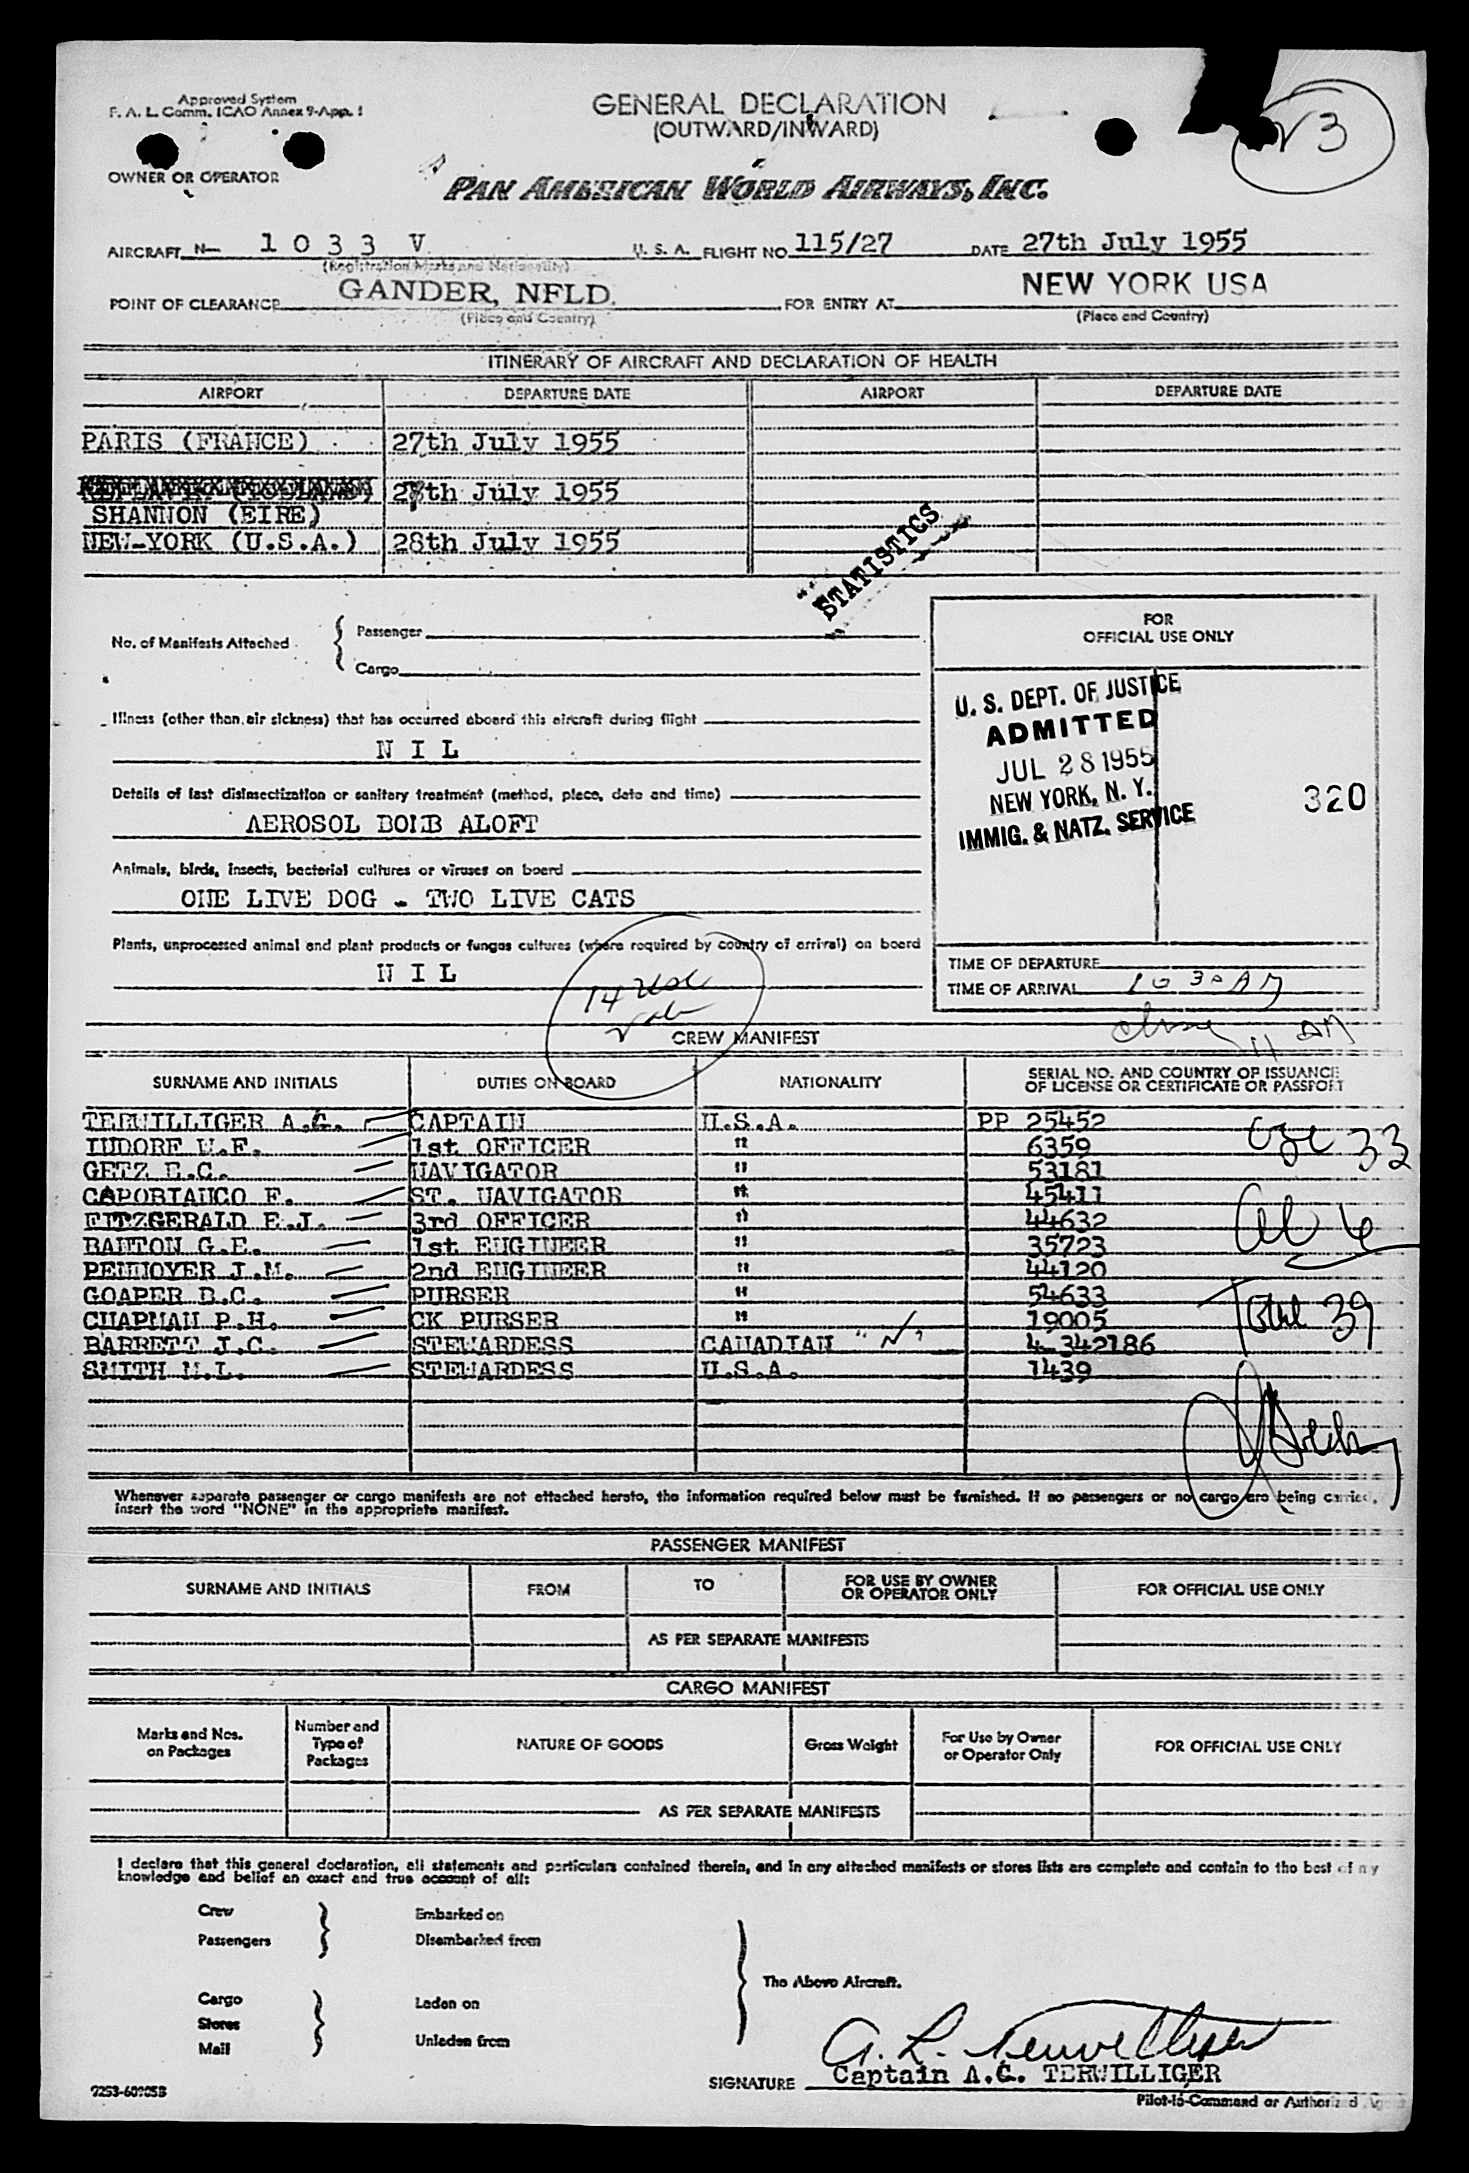 Approved System
F. A. L. Comm. ICAO Annex 9-App. 1
GENERAL DECLARATION
(OUTWARD/INWARD)
V 3
OWNER OR OPERATOR
PAN AMERICAN WORLD AIRWAYS, INC.
AIRCRAFT N- 1 0 3 3 V U. S. A. FLIGHT NO. 115/27 DATE 27th July 1955
(Registration Marks and Nationality)
POINT OF CLEARANCE GANDER, NFLD. FOR ENTRY AT NEW YORK USA
(Place and Country) (Place and Country)
ITINERARY OF AIRCRAFT AND DECLARATION OF HEALTH
AIRPORT DEPARTURE DATE AIRPORT DEPARTURE DATE
PARIS (FRANCE) 27th July 1955
27th July 1955
SHANNON (EIRE)
NEW-YORK (U.S.A.) 28th July 1955
"STATISTICS"
FOR
OFFICIAL USE ONLY
No. of Manifests Attached { Passenger
Cargo
U. S. DEPT. OF JUSTICE
ADMITTED
JUL 28 1955
NEW YORK, N. Y.
IMMIG. & NATZ. SERVICE
320
Illness (other than air sickness) that has occurred aboard this aircraft during flight
N I L
Details of last disinsectization or sanitary treatment (method, place, date and time)
AEROSOL BOMB ALOFT
Animals, birds, insects, bacterial cultures or viruses on board
ONE LIVE DOG - TWO LIVE CATS
Plants, unprocessed animal and plant products or fungus cultures (where required by country of arrival) on board
N I L
14
TIME OF DEPARTURE
TIME OF ARRIVAL 10 30 AM
11 AM
CREW MANIFEST
SURNAME AND INITIALS DUTIES ON BOARD NATIONALITY SERIAL NO. AND COUNTRY OF ISSUANCE
OF LICENSE OR CERTIFICATE OR PASSPORT
TERWILLIGER A.G. CAPTAIN U.S.A. PP 25452
IUDORF W.F. 1st OFFICER " 6359
GETZ E.C. NAVIGATOR " 53181
CAPORIAUCO F. ST. NAVIGATOR " 45411
FITZGERALD E.J. 3rd OFFICER " 44632
BANTON G.E. 1st ENGINEER " 35723
PENNOYER J.M. 2nd ENGINEER " 44120
GOAPER D.C. PURSER " 54633
CHAPMAN P.H. CK PURSER " 19005
BARRETT J.C. STEWARDESS CANADIAN "N" 4-342186
SMITH M.L. STEWARDESS U.S.A. 1439
33
6
Total 39
Whenever separate passenger or cargo manifests are not attached hereto, the information required below must be furnished. If no passengers or no cargo are being carried,
insert the word "NONE" in the appropriate manifest.
PASSENGER MANIFEST
SURNAME AND INITIALS FROM TO FOR USE BY OWNER
OR OPERATOR ONLY FOR OFFICIAL USE ONLY
AS PER SEPARATE MANIFESTS
CARGO MANIFEST
Marks and Nos.
on Packages Number and
Type of
Packages NATURE OF GOODS Gross Weight For Use by Owner
or Operator Only FOR OFFICIAL USE ONLY
AS PER SEPARATE MANIFESTS
I declare that this general declaration, all statements and particulars contained therein, and in any attached manifests or stores lists are complete and contain to the best of my
knowledge and belief an exact and true account of all:
Crew Embarked on
Passengers Disembarked from
The Above Aircraft.
Cargo Laden on
Stores
Mail Unladen from
A. L. Terwilliger
SIGNATURE Captain A.G. TERWILLIGER
Pilot-in-Command or Authorized Agent